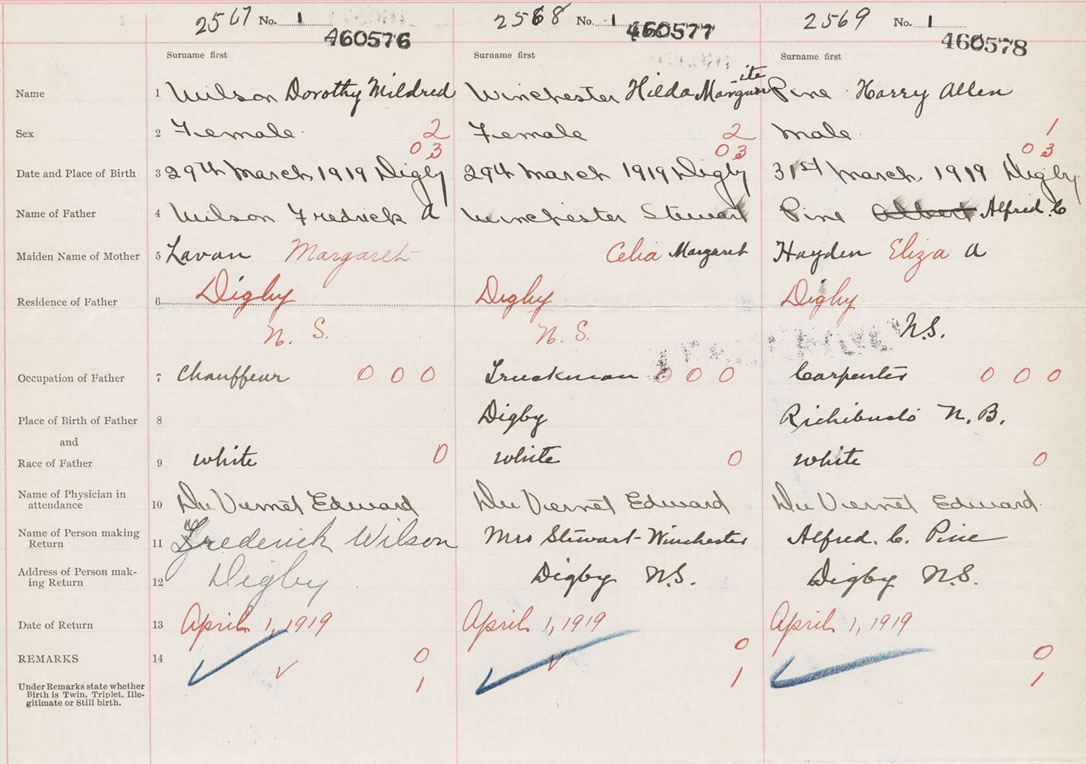 2567 No. 1 2568 No. 1 2569 No. 1
460576 460577 460578
Surname first Surname first Surname first
Name 1 Wilson Dorothy Mildred Winchester Hilda Marguerite Pine Harry Allen
Sex 2 Female 2 Female 2 Male 1
03 03 03
Date and Place of Birth 3 29th March 1919 Digby 29th March 1919 Digby 31st March 1919 Digby
Name of Father 4 Wilson Fredrick A Winchester Stewart Pine Albert Alfred. C
Maiden Name of Mother 5 Lavan Margaret Celia Margaret Hayden Eliza A
Residence of Father 6 Digby Digby Digby
N. S. N. S. N.S.
Occupation of Father 7 Chauffeur 0 0 0 Truckman 0 0 0 Carpenter 0 0 0
Place of Birth of Father 8 Digby Richibucto N. B.
and
Race of Father 9 white 0 white 0 white 0
Name of Physician in
attendance 10 Du Vernet Edward Du Vernet Edward Du Vernet Edward
Name of Person making
Return 11 Frederick Wilson Mrs Stewart Winchester Alfred. C. Pine
Address of Person mak-
ing Return 12 Digby Digby N.S. Digby N.S.
Date of Return 13 April 1, 1919 April 1, 1919 April 1, 1919
REMARKS 14 0 0 0
Under Remarks state whether 1 1 1
Birth is Twin, Triplet, Ille-
gitimate or Still birth.